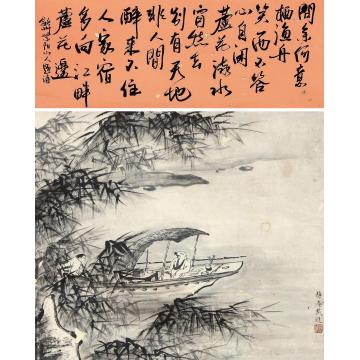 問余何意
栖漁舟
笑而不答
心自困
蘆花流水
窅然去
別有天地
非人間
醉来不住
人家宿
多向江畔
蘆花邊